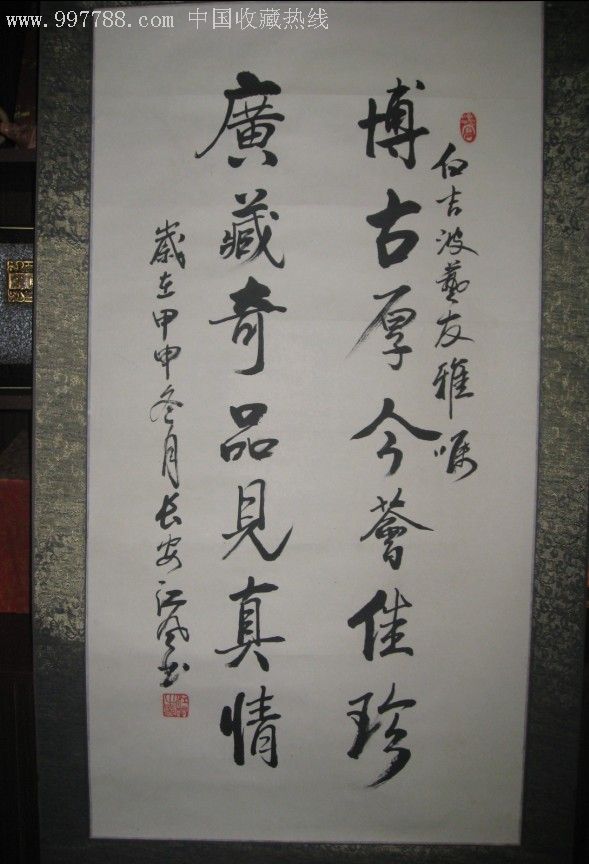 www.997788.com 中国收藏热线
白吉波藝友雅嘱
博古厚今薈佳珍
廣藏奇品見真情
歲在甲申冬月长安江风书